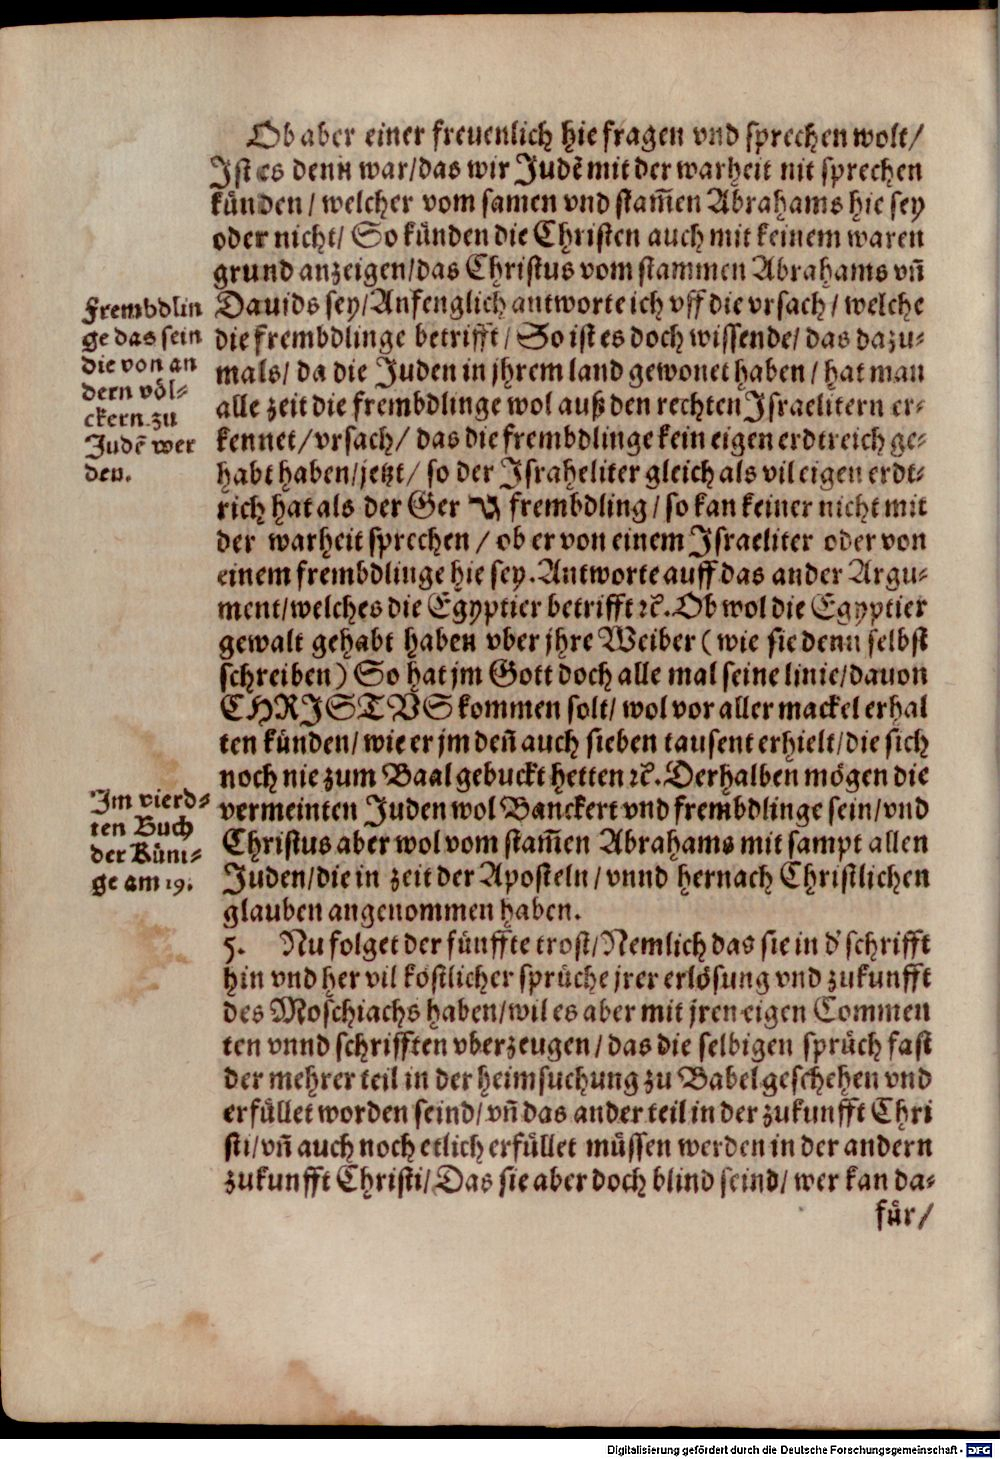 Ob aber einer freuenlich hie fragen vnd sprechen wolt/
Ist es denn war/das wir Judē mit der warheit nit sprechen
künden/ welcher vom samen vnd stam̄en Abrahams hie sey
oder nicht/ So künden die Christen auch mit keinem waren
grund anzeigen/das Christus vom stammen Abrahams vn̄
Dauids sey/Anfenglich antworte ich vff die vrsach/ welche
die frembdlinge betrifft/ So ist es doch wissende/ das dazu-
mals/ da die Juden in jhrem land gewonet haben/ hat man
alle zeit die frembdlinge wol auß den rechten Israelitern er-
kennet/vrsach/ das die frembdlinge kein eigen erdtreich ge-
habt haben/jetzt/ so der Israheliter gleich als vil eigen erdt-
rich hat als der Ger frembdling/ so kan keiner nicht mit
der warheit sprechen/ ob er von einem Israeliter oder von
einem frembdlinge hie sey. Antworte auff das ander Argu-
ment/welches die Egyptier betrifft ꝛc̄. Ob wol die Egyptier
gewalt gehabt haben vber jhre Weiber (wie sie denn selbst
schreiben) So hat jm Gott doch alle mal seine linie/dauon
CHRISTVS kommen solt/ wol vor aller mackel erhal
ten künden/ wie er jm den̄ auch sieben tausent erhielt/die sich
noch nie zum Baal gebuckt hetten ꝛc̄. Derhalben mögen die
vermeinten Juden wol Banckert vnd frembdlinge sein/vnd
Christus aber wol vom stam̄en Abrahams mit sampt allen
Juden/die in zeit der Aposteln/ vnnd hernach Christlichen
glauben angenommen haben.
5. Nu folget der fünffte trost/Nemlich das sie in d' schrifft
hin vnd her vil köstlicher sprüche jrer erlösung vnd zukunfft
des Moschiachs haben/wil es aber mit jren eigen Commen
ten vnnd schrifften vberzeugen/ das die selbigen sprüch fast
der mehrer teil in der heimsuchung zu Babel geschehen vnd
erfüllet worden seind/ vn̄ das ander teil in der zukunfft Chri
sti/ vn̄ auch noch etlich erfüllet müssen werden in der andern
zukunfft Christi/ Das sie aber doch blind seind/ wer kan da-
für/
Frembdlin
ge das sein
die von an
dern völ-
ckern zu
Judē wer
den.
Im vierd-
ten Buch
der Küni-
ge am 19.
Digitalisierung gefördert durch die Deutsche Forschungsgemeinschaft - DFG